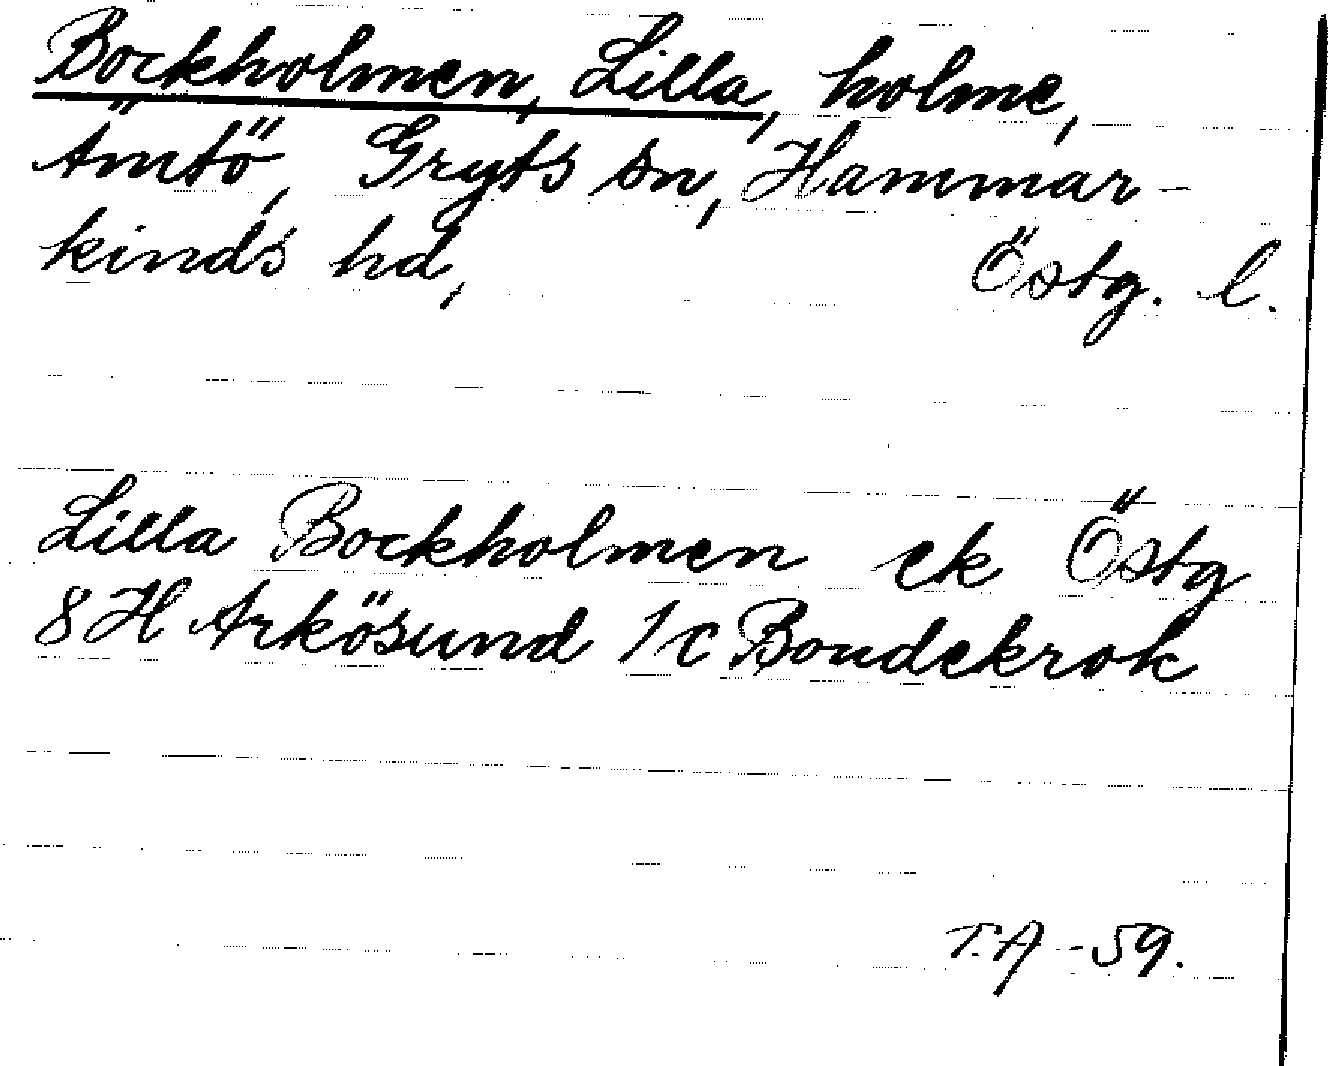 Bockholmen, Lilla, holme,
Ämtö, Gryts sn, Hammar-
kinds hd, Östg. l.
Lilla Bockholmen ek Östg
8 H Arkösund 1 c Bondekrok
T.A -59.